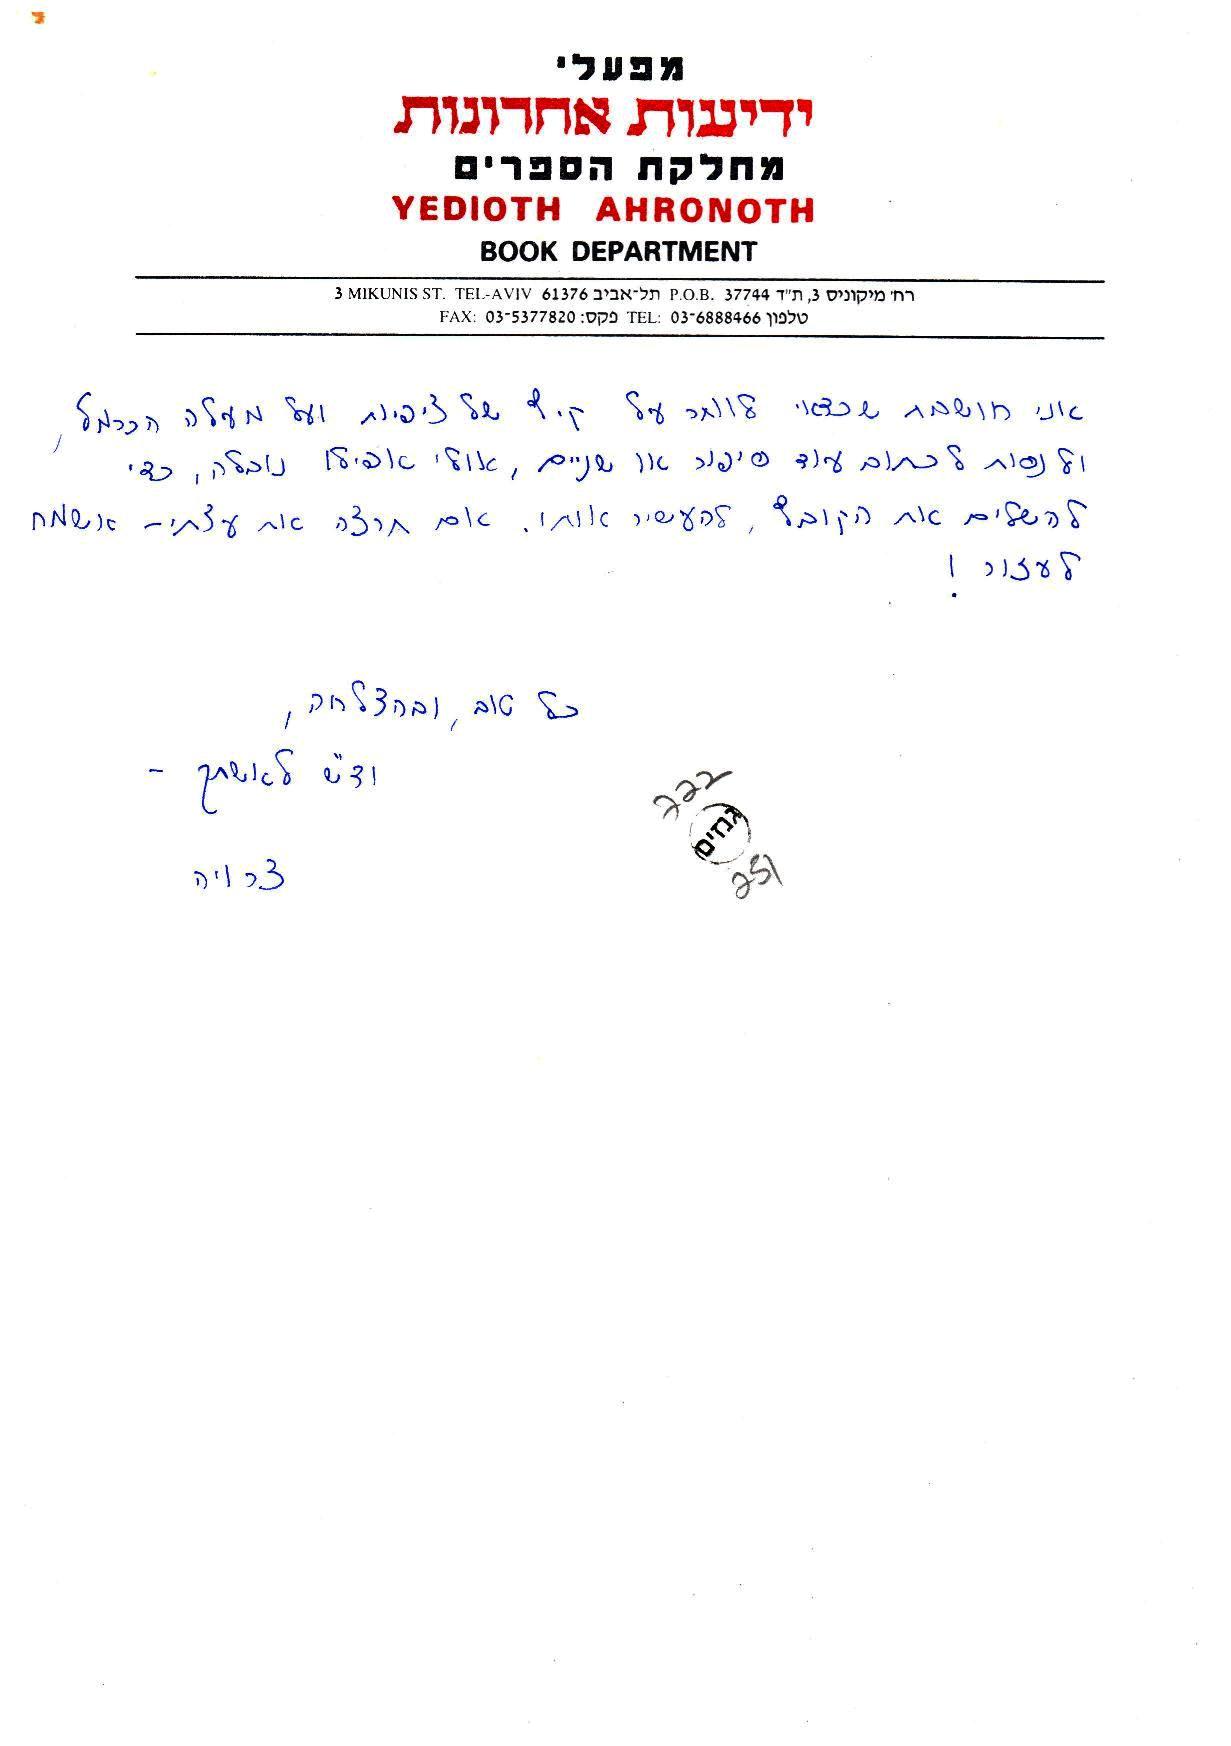 מפעלי
ידיעות אחרונות
מחלקת הספרים
YEDIOTH AHRONOTH
BOOK DEPARTMENT
רח' מיקוניס 3, ת"ד 37744 .P.O.B תל-אביב 61376 3 MIKUNIS ST. TEL-AVIV
טלפון 03-6888466 :TEL פקס: 03-5377820 :FAX
אני חושבת שכדאי לוותר על קיץ של ציפיות ועל מעלה הכרמל,
ולנסות לכתוב עוד סיפור או שניים, אולי אפילו נובלה, כדי
להשלים את הקובץ, להעשיר אותו. אם תרצה את עצתי - אשמח
לעזור!
כל טוב, ובהצלחה,
וד"ש לאשתך -
צרויה
222
גנזים
251